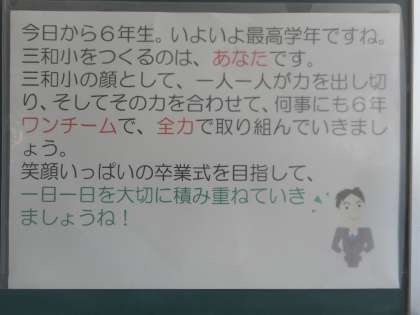 今日から６年生。いよいよ最高学年ですね。
三和小をつくるのは、あなたです。
三和小の顔として、一人一人が力を出し切
り、そしてその力を合わせて、何事にも６年
ワンチームで、全力で取り組んでいきまし
ょう。
笑顔いっぱいの卒業式を目指して、
一日一日を大切に積み重ねていき
ましょうね！